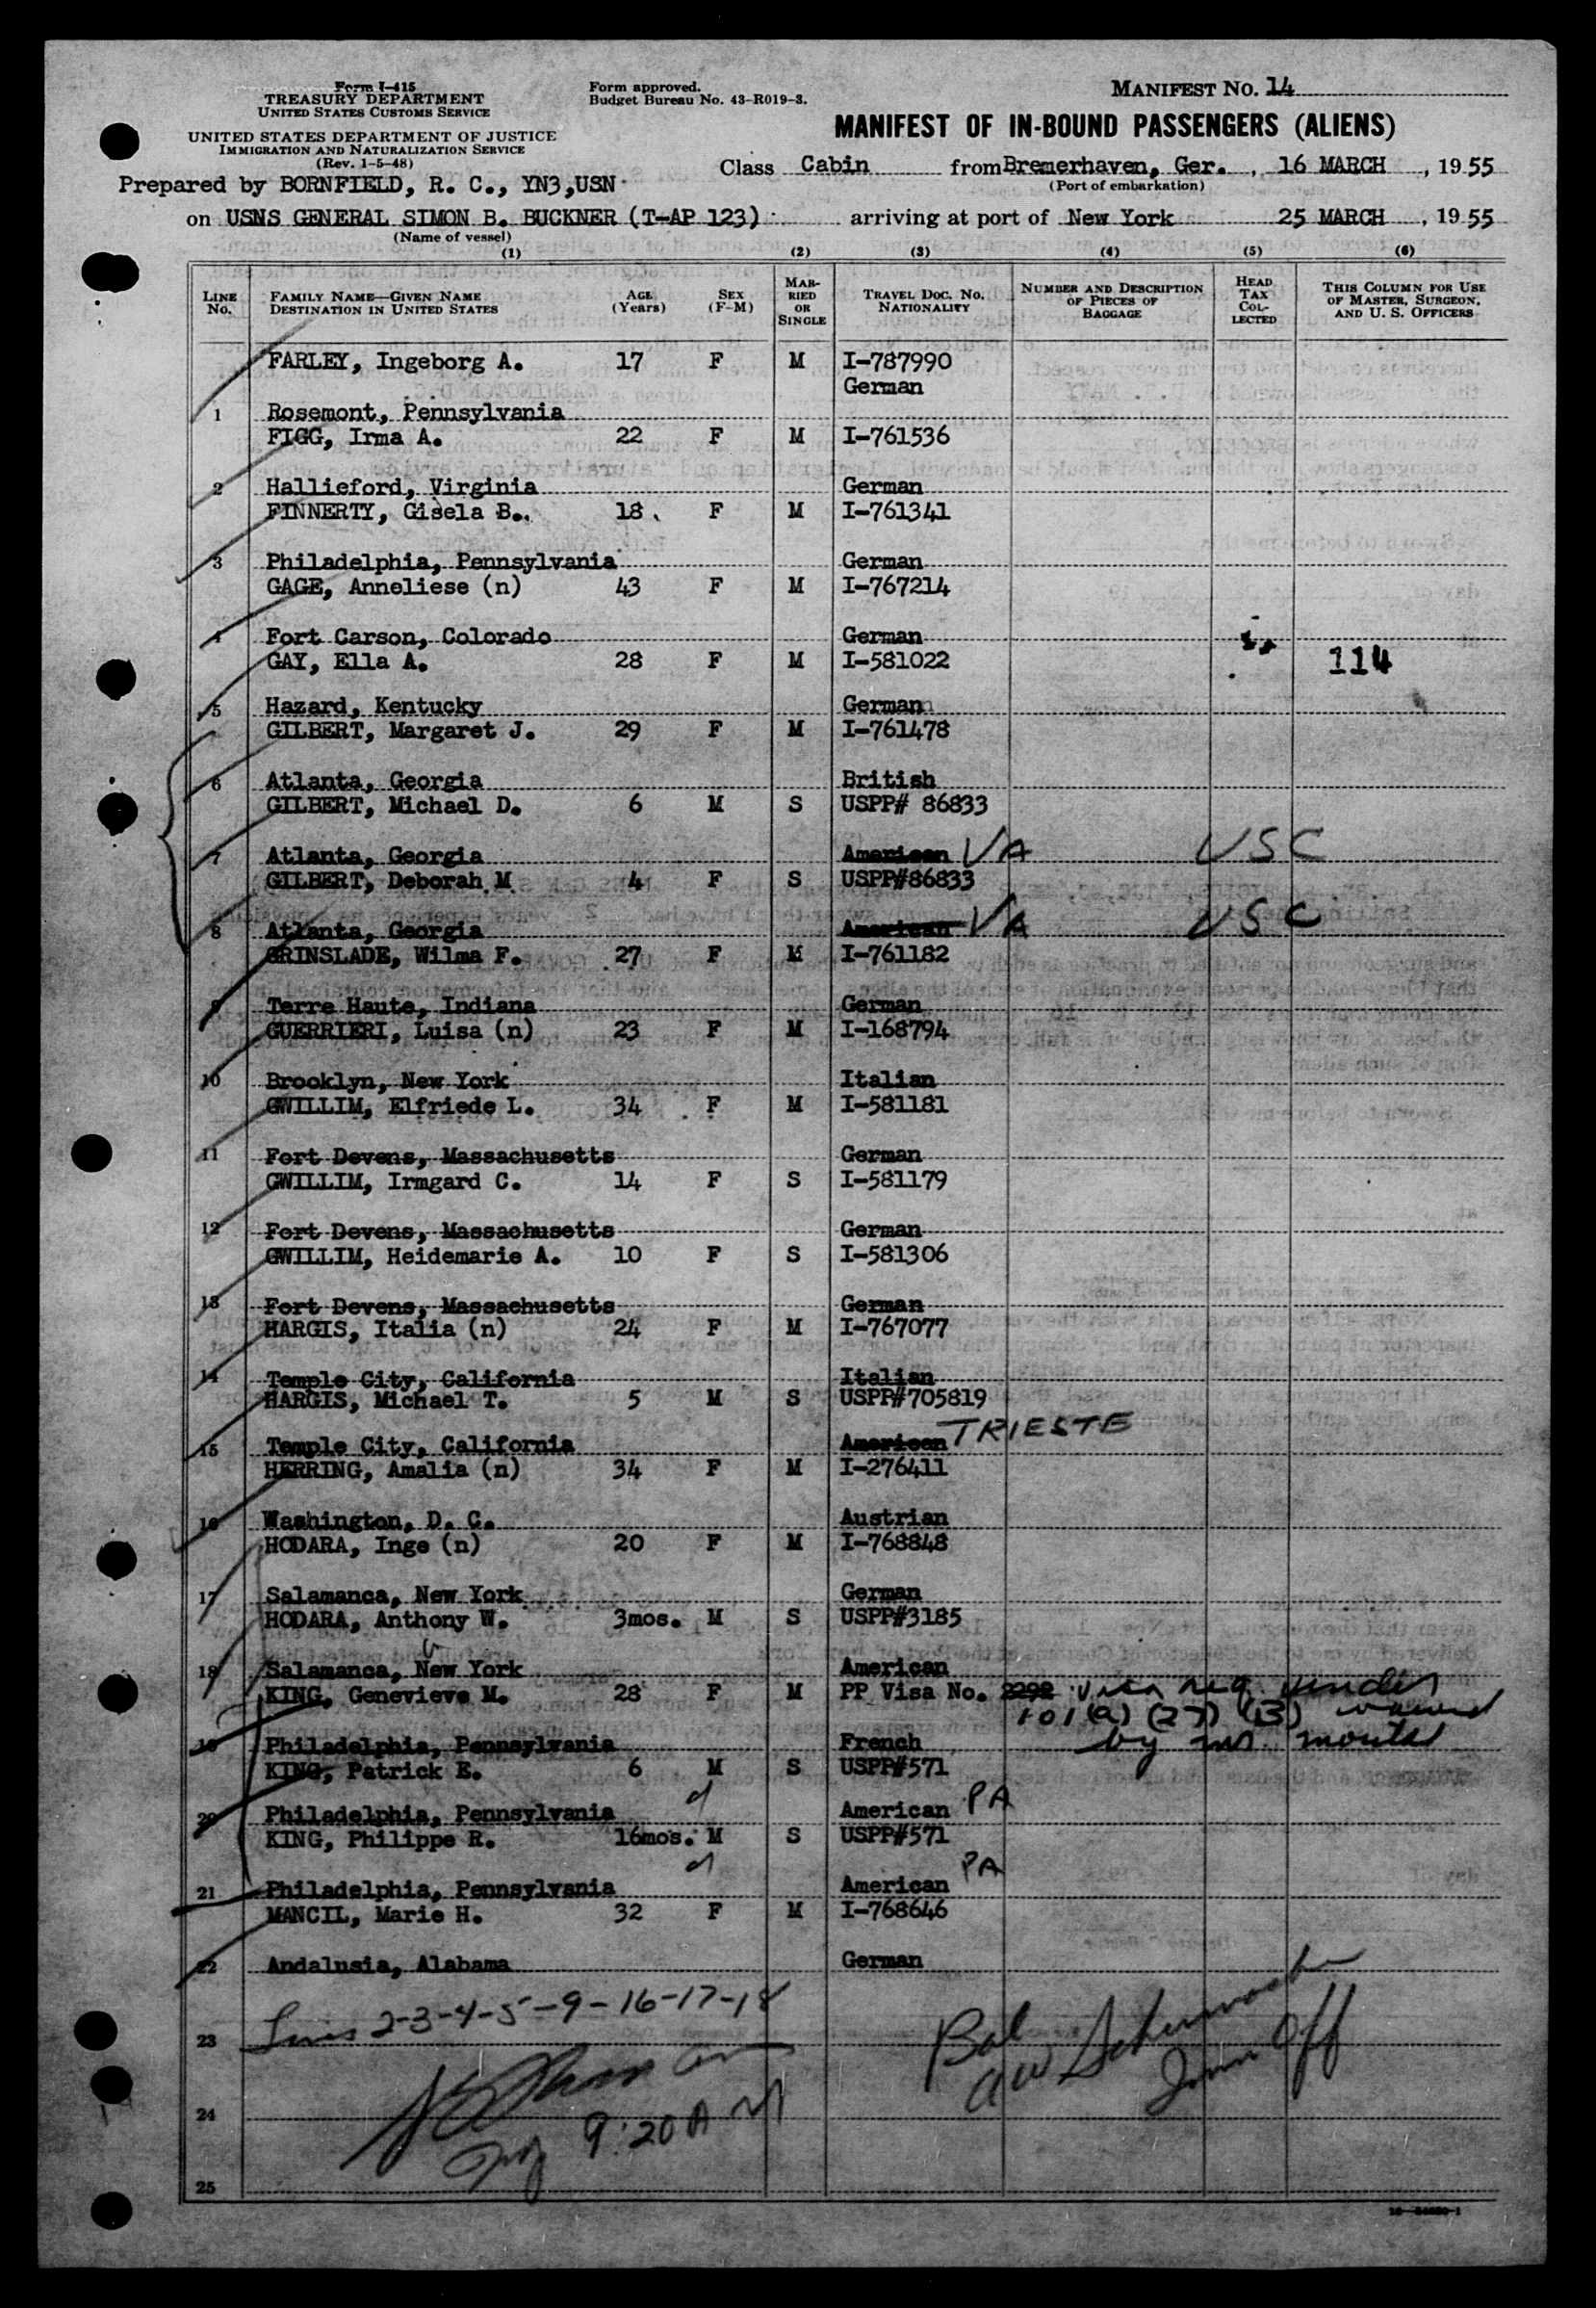 Form I-415
TREASURY DEPARTMENT
UNITED STATES CUSTOMS SERVICE
UNITED STATES DEPARTMENT OF JUSTICE
IMMIGRATION AND NATURALIZATION SERVICE
(Rev. 1-5-48)
Form approved.
Budget Bureau No. 43-R019-3.
MANIFEST NO. 14
MANIFEST OF IN-BOUND PASSENGERS (ALIENS)
Class Cabin from Bremerhaven, Ger. , 16 MARCH , 19 55
(Port of embarkation)
Prepared by BORNFIELD, R. C., YN3,USN
on USNS GENERAL SIMON B. BUCKNER (T-AP 123) arriving at port of New York 25 MARCH , 19 55
(Name of vessel)
(1) (2) (3) (4) (5) (6)
LINE NO. FAMILY NAME—GIVEN NAME DESTINATION IN UNITED STATES AGE (Years) SEX (F-M) MARRIED OR SINGLE TRAVEL DOC. NO. NATIONALITY NUMBER AND DESCRIPTION OF PIECES OF BAGGAGE HEAD TAX COLLECTED THIS COLUMN FOR USE OF MASTER, SURGEON, AND U. S. OFFICERS
FARLEY, Ingeborg A. 17 F M I-787990
German
1 Rosemont, Pennsylvania
FIGG, Irma A. 22 F M I-761536
2 Hallieford, Virginia German
FINNERTY, Gisela B. 18 F M I-761341
3 Philadelphia, Pennsylvania German
GAGE, Anneliese (n) 43 F M I-767214
4 Fort Carson, Colorado German
GAY, Ella A. 28 F M I-581022 114
5 Hazard, Kentucky German
GILBERT, Margaret J. 29 F M I-761478
6 Atlanta, Georgia British
GILBERT, Michael D. 6 M S USPP# 86833
7 Atlanta, Georgia American VA USC
GILBERT, Deborah M 4 F S USPP#86833
8 Atlanta, Georgia American VA USC
GRINSLADE, Wilma F. 27 F M I-761182
9 Terre Haute, Indiana German
GUERRIERI, Luisa (n) 23 F M I-168794
10 Brooklyn, New York Italian
GWILLIM, Elfriede L. 34 F M I-581181
11 Fort Devens, Massachusetts German
GWILLIM, Irmgard C. 14 F S I-581179
12 Fort Devens, Massachusetts German
GWILLIM, Heidemarie A. 10 F S I-581306
13 Fort Devens, Massachusetts German
HARGIS, Italia (n) 24 F M I-767077
14 Temple City, California Italian
HARGIS, Michael T. 5 M S USPP#705819
15 Temple City, California American TRIESTE
HERRING, Amalia (n) 34 F M I-276411
16 Washington, D. C. Austrian
HODARA, Inge (n) 20 F M I-768848
17 Salamanca, New York German
HODARA, Anthony W. 3mos. M S USPP#3185
18 Salamanca, New York American
KING, Genevieve M. 28 F M PP Visa No. 2292 visa req. under
101(a) (27) (B) waived
19 Philadelphia, Pennsylvania French by
KING, Patrick E. 6 M S USPP#571
20 Philadelphia, Pennsylvania American PA
KING, Philippe R. 16mos. M S USPP#571
21 Philadelphia, Pennsylvania American PA
MANCIL, Marie H. 32 F M I-768646
22 Andalusia, Alabama German
23 Lines 2-3-4-5-9-16-17-18
Bal
Imm Off
24 9:20 AM
25